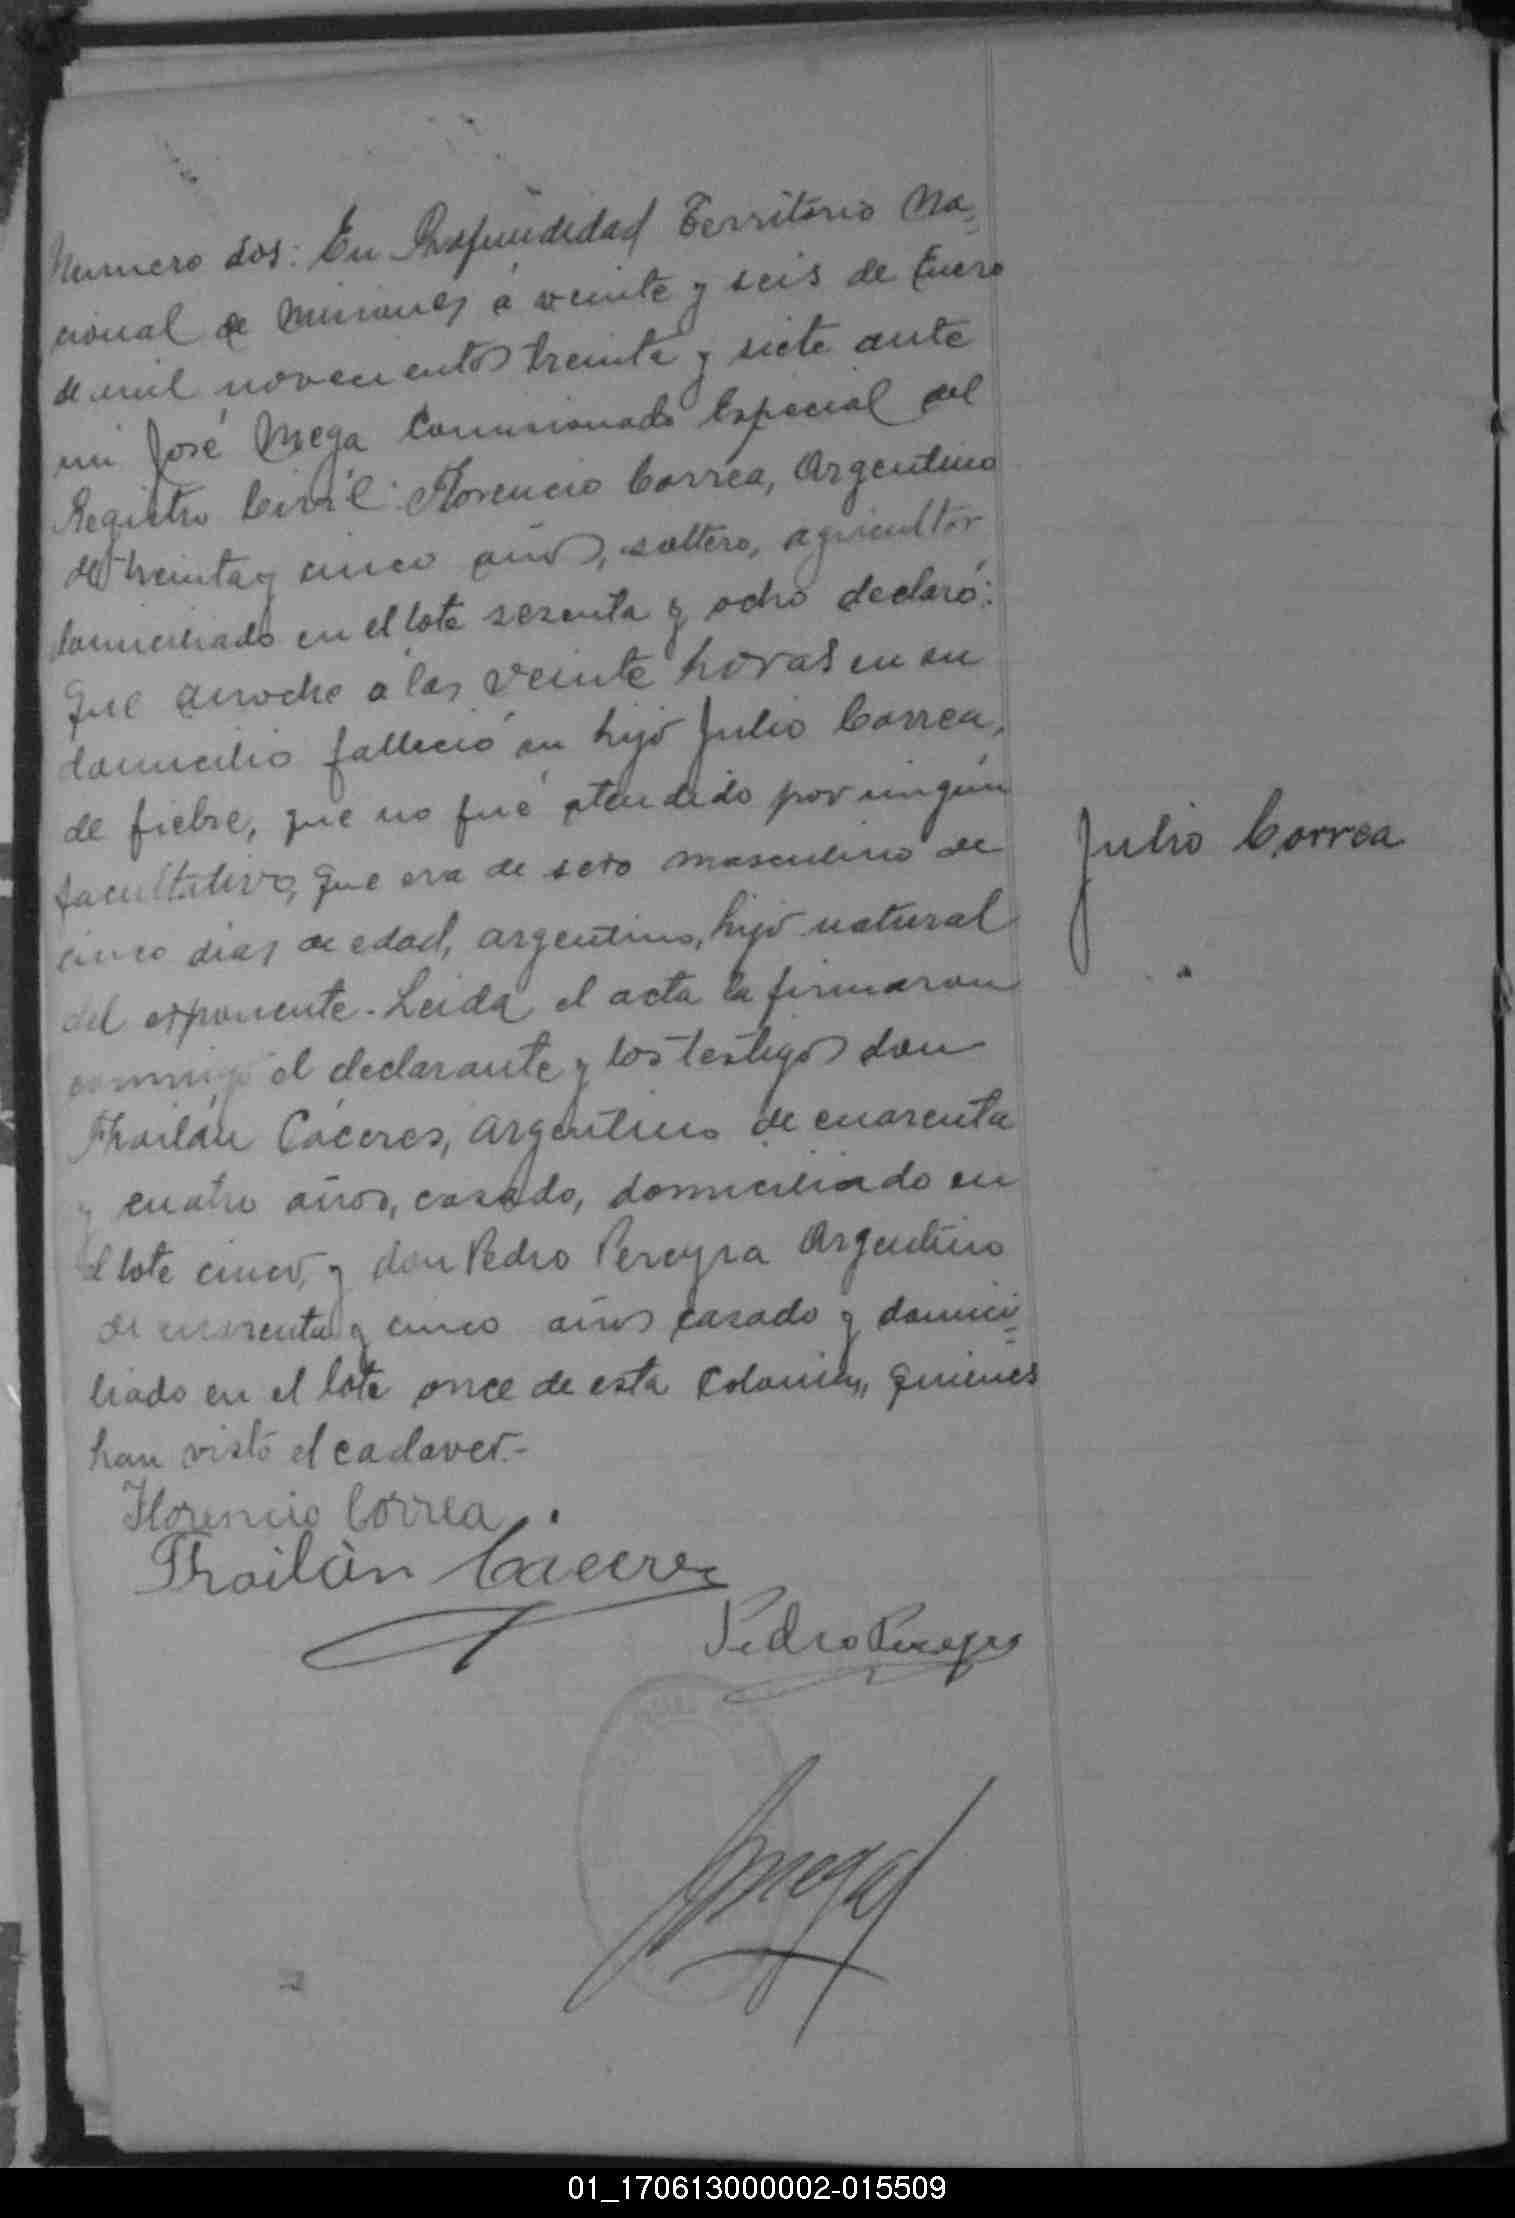 Numero dos: En Profundidad Territorio Na-
cional de Misiones á veinte y seis de Enero
de mil novecientos treinta y siete ante
mi José Mega Comisionado Especial del
Registro Civil: Florencio Correa, Argentino
de treinta y cinco años, soltero, agricultor
domiciliado en el lote sesenta y ocho declaró:
Que anoche a las veinte horas en su
domicilio falleció su hijo Julio Correa,
de fiebre, que no fué atendido por ningún
facultativo, que era de sexo masculino de
cinco dias de edad, argentino, hijo natural
del exponente. Leida el acta la firmaron
conmigo el declarante y los testigos don
Froilán Cáceres, argentino de cuarenta
y cuatro años, casado, domiciliado en
el lote cinco, y don Pedro Pereyra Argentino
de cuarenta y cinco años casado y domici=
liado en el lote once de esta Colonia, quienes
han visto el cadaver.-
Florencio Correa
Froilán Caceres
Pedro Pereyra
JMega
Julio Correa
01_170613000002-015509